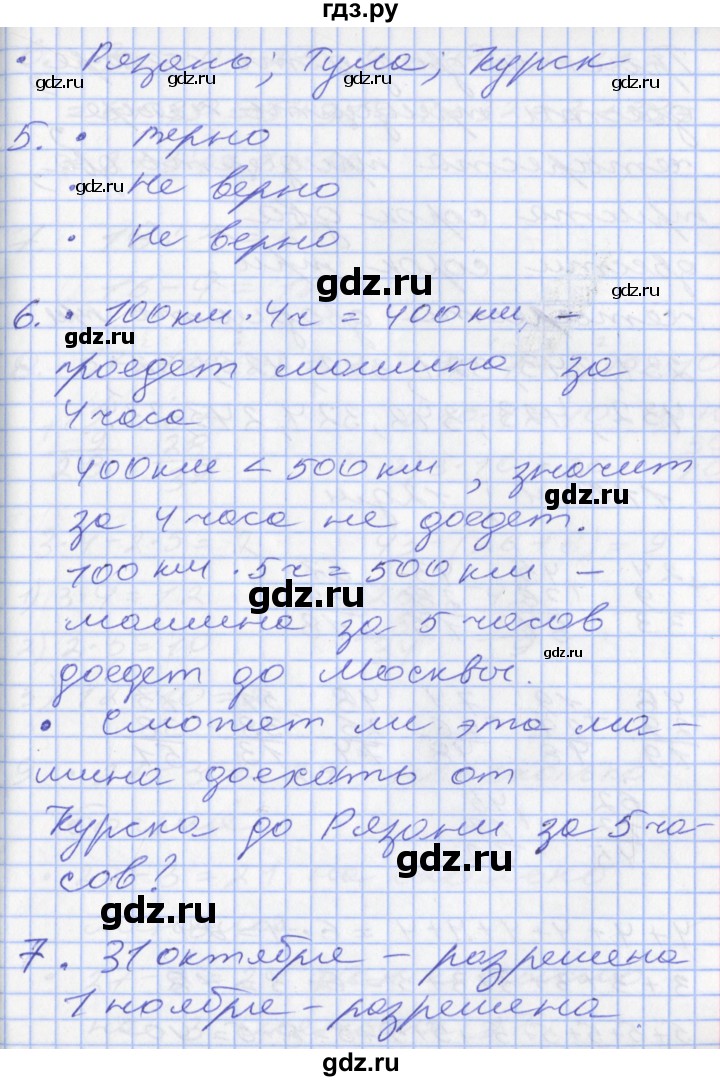 гдз.ру
• Рязань; Тула; Курск
gdz.ru gdz.ru gdz.ru
5. • верно
• не верно
gdz.ru
• не верно
gdz.ru
gdz.ru
6. • 100 км · 4 ч = 400 км, –
gdz.ru
проедет машина за
4 часа
400 км < 500 км, значит
gdz.ru
за 4 часа не доедет.
100 км · 5 ч = 500 км –
gdz.ru
машина за 5 часов
gdz.ru
доедет до Москвы.
• Сможет ли эта ма-
шина доехать от
Курска до Рязани за 5 ча-
gdz.ru
сов?
gdz.ru
7. 31 октября – разрешена
1 ноября – разрешена
gdz.ru